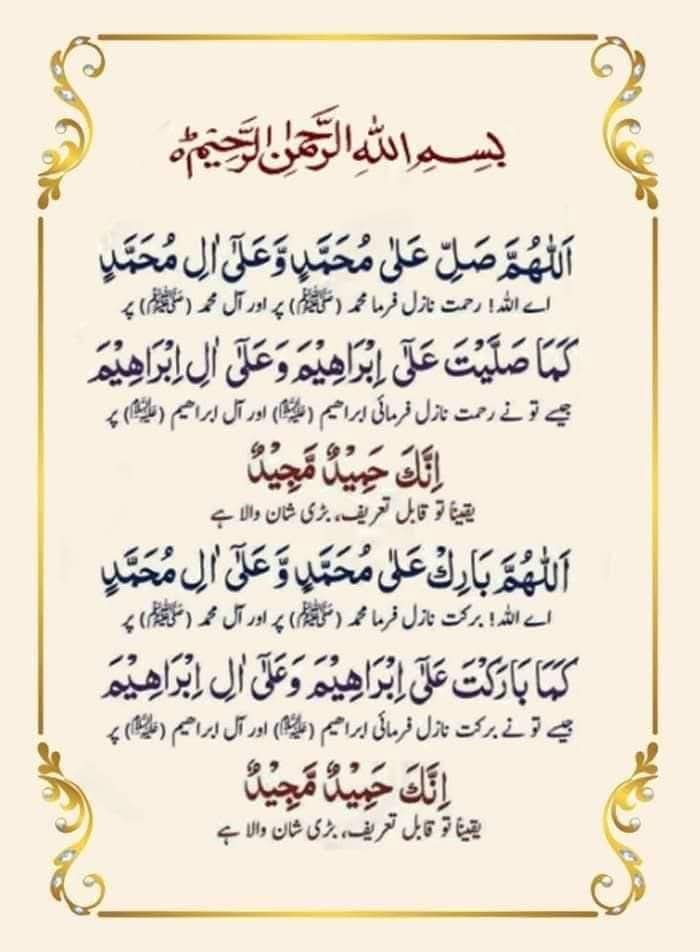 بِسْمِ اللهِ الرَّحْمٰنِ الرَّحِيْمِ
اَللّٰهُمَّ صَلِّ عَلٰى مُحَمَّدٍ وَّعَلٰٓى اٰلِ مُحَمَّدٍ
اے اللہ! رحمت نازل فرما محمد (ﷺ) پر اور آل محمد (ﷺ) پر
كَمَا صَلَّيْتَ عَلٰٓى اِبْرَاهِيْمَ وَعَلٰٓى اٰلِ اِبْرَاهِيْمَ
جیسے تو نے رحمت نازل فرمائی ابراھیم (علیہ السلام) اور آل ابراھیم (علیہ السلام) پر
اِنَّكَ حَمِيْدٌ مَّجِيْدٌ
یقیناً تو قابل تعریف، بڑی شان والا ہے
اَللّٰهُمَّ بَارِكْ عَلٰى مُحَمَّدٍ وَّ عَلٰٓى اٰلِ مُحَمَّدٍ
اے اللہ! برکت نازل فرما محمد (ﷺ) پر اور آل محمد (ﷺ) پر
كَمَا بَارَكْتَ عَلٰٓى اِبْرَاهِيْمَ وَعَلٰٓى اٰلِ اِبْرَاهِيْمَ
جیسے تو نے برکت نازل فرمائی ابراھیم (علیہ السلام) اور آل ابراھیم (علیہ السلام) پر
اِنَّكَ حَمِيْدٌ مَّجِيْدٌ
یقیناً تو قابل تعریف، بڑی شان والا ہے